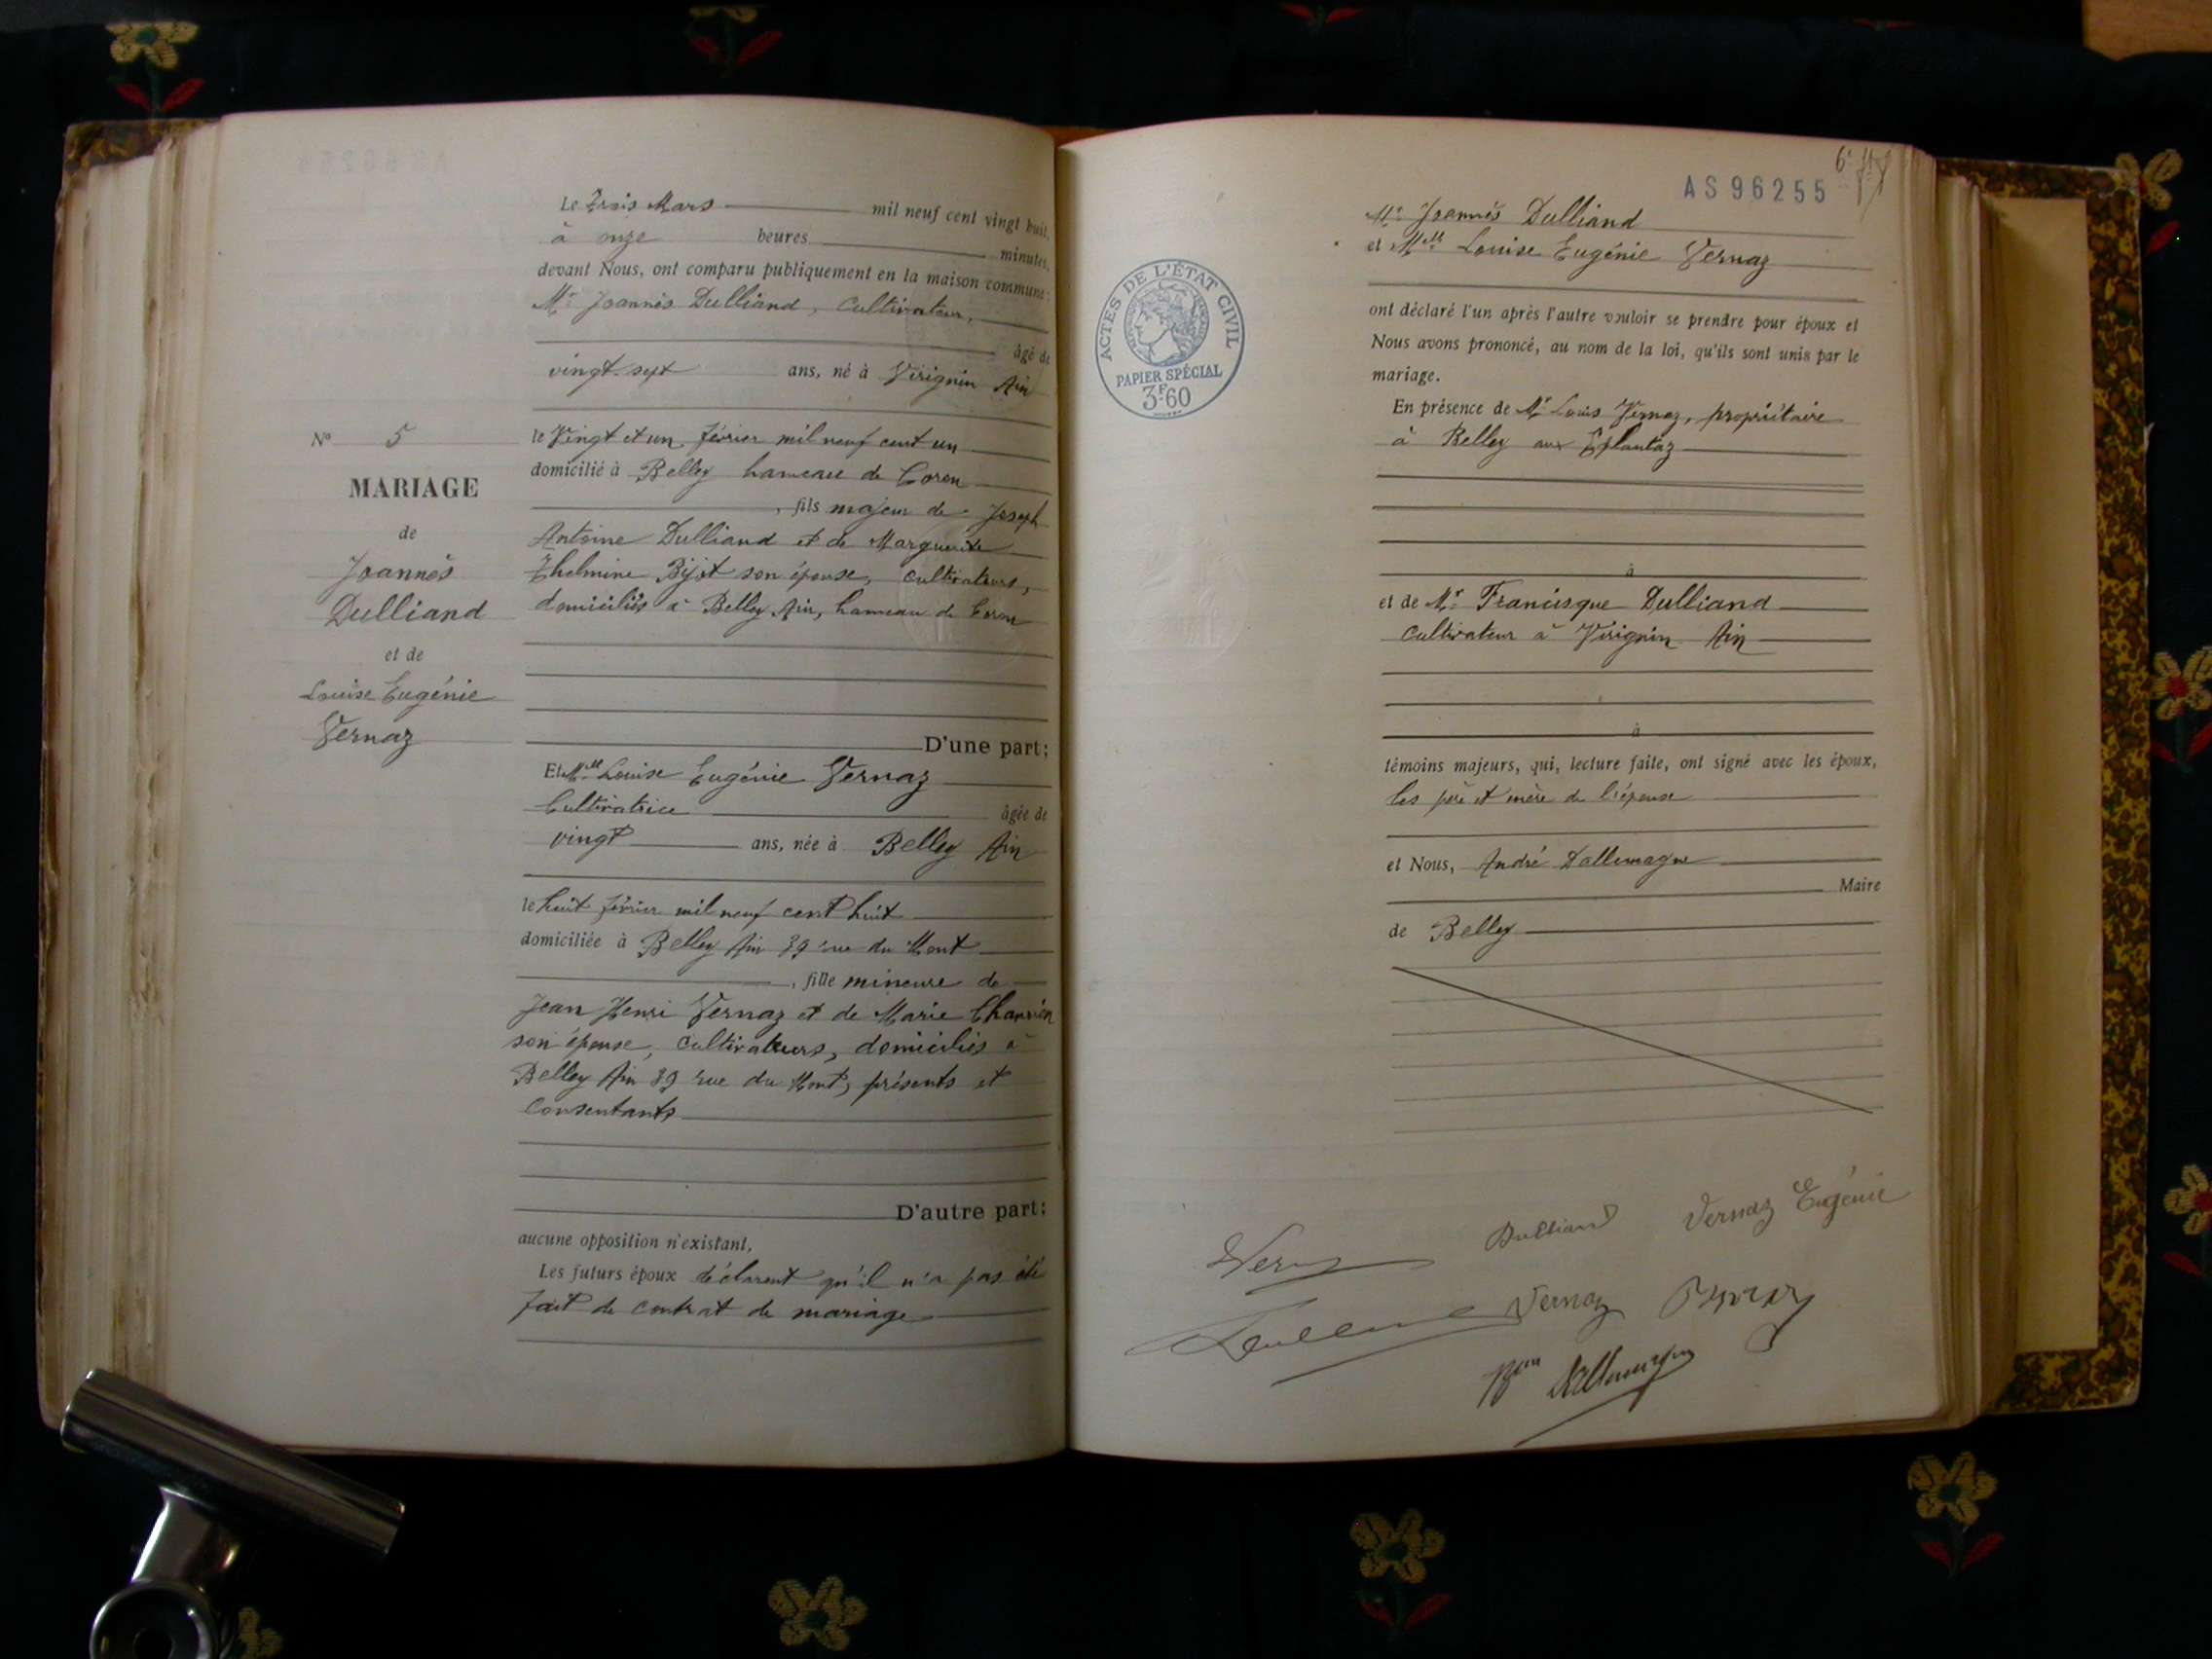 Le Trois Mars mil neuf cent vingt huit,
à onze heures minutes,
devant Nous, ont comparu publiquement en la maison commune:
Mr Joannès Dulliand, Cultivateur,
âgé de
vingt-sept ans, né à Virignin Ain
le Vingt et un février mil neuf cent un
domicilié à Belley hameau de Coron
, fils majeur de Joseph
Antoine Dulliand et de Marguerite
Thelmine Bijot son épouse, cultivateurs,
domiciliés à Belley Ain, hameau de Coron
D'une part;
Et Mlle Louise Eugénie Vernaz
Cultivatrice âgée de
vingt ans, née à Belley Ain
le huit février mil neuf cent huit
domiciliée à Belley Ain 39 rue du Mont
, fille mineure de
Jean Henri Vernaz et de Marie
son épouse, cultivateurs, domiciliés à
Belley Ain 39 rue du Mont, présents et
Consentants
D'autre part;
aucune opposition n'existant,
Les futurs époux déclarent qu'il n'a pas été
fait de contrat de mariage
No 5
MARIAGE
de
Joannès
Dulliand
et de
Louise Eugénie
Vernaz
AS 96255
Mr Joannès Dulliand
et Mlle Louise Eugénie Vernaz
ACTES DE L'ÉTAT CIVIL
PAPIER SPÉCIAL
3F60
ont déclaré l'un après l'autre vouloir se prendre pour époux et
Nous avons prononcé, au nom de la loi, qu'ils sont unis par le
mariage.
En présence de Mr Louis Vernaz, propriétaire
à Belley aux
à
et de Mr Francisque Dulliand
Cultivateur à Virignin Ain
à
témoins majeurs, qui, lecture faite, ont signé avec les époux,
les père et mère de l'épouse
et Nous, André Dallemagne
Maire
de Belley
Dulliand
Vernaz Eugénie
Vernaz
Dallemagne